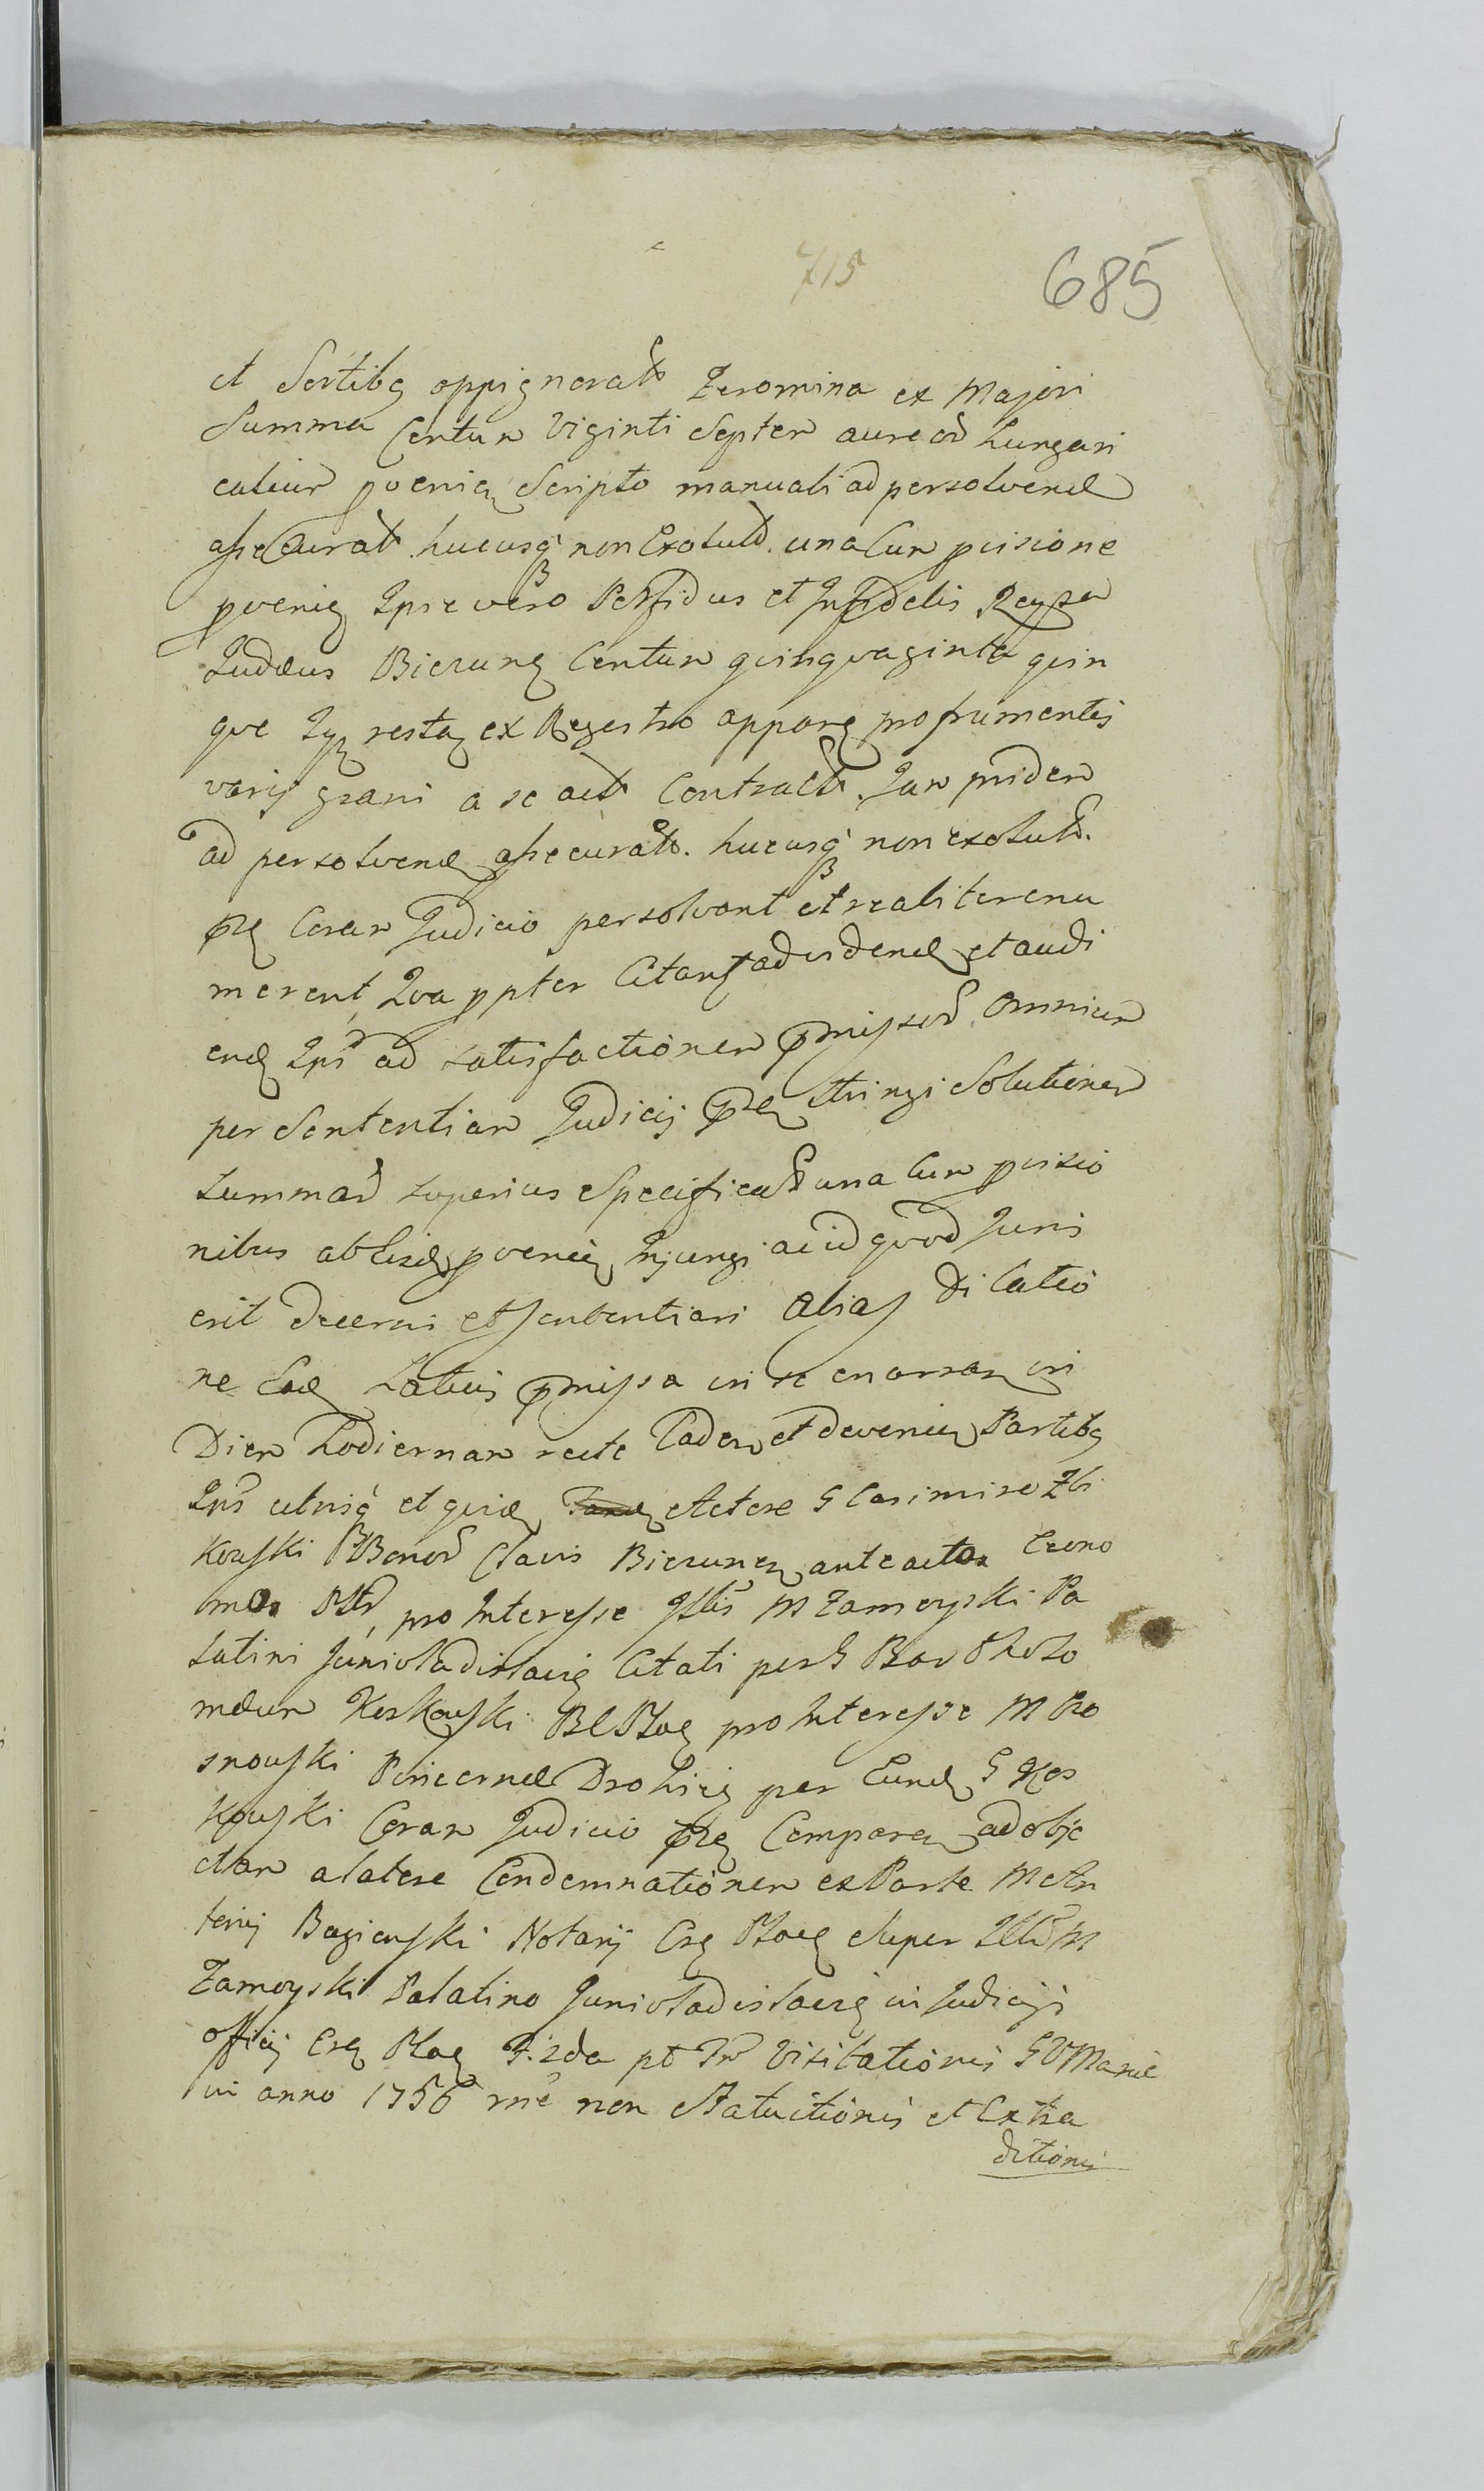 715
685
et Sortibg oppignorat Zeromina ex Majori
Summa Centum Viginti Septem aureod hungari
calium pvenien Scripto manuali ad persolvend
assecurat hucusq non Exolut. una Cum pvisione
pvenien Ipse vero Perfidus et Infidelis
Judæus Bierunen Centum quinquaginta quin
que restan ex Regestro apparen pro frumentis
varij grani a se act Contract. Jam pridem
ad persolvend assecurat. hucusq non exolut.
Coram Judicio persolvant et realiter enu
merent, Qua ppter Citans ad vidend et audi
end Ips ad satisfactionem pmissod omnium
per Sententiam Judicij pn Stringi Solutionem
Summad superius Specificat una Cum pvisio
nibus ab Eisd pvenien Injungi ac id quod Juris
erit decerni et sententiari alias Dilatio
ne Ead Latius pmissa in se enarran in
Diem hodiernam recte Caden et devenien Partibg
Ips utrisq et quid Actore G Casimiro Zbi
kowski BBonod Clavis Bierunen anteacto Econo
mo Ptr, pro Interesse Illis M Zamoyski Pa
latini Junivladislavien Citati per G Bartholo
mæum Koskowski pro Interesse M Ro
snowski Pincernæ Drohicien per Eund G Kos
kowski Coram Judicio pn Comparen ad obje
ctam a latere Condemnationem ex Parte M An
tonij Bagiewski Notarij Super Illo M
Zamoyski Palatino Junivladislavien in Judicijs
officij pt Visitationis BVMariæ
in anno 1756 rne non Statuitionis et Extra
ditionis